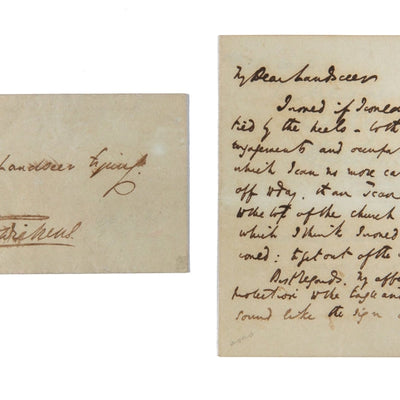 Landseer Esquire
Dickens
My Dear Landseer
I would if I could
tied by the heels - to th
engagements and occupat
which I can no more ca
off today. than I can
to the top of the church
which I think I
: to get out of the
Best regards. My affe
protection to the Eagle and
sound like the sign